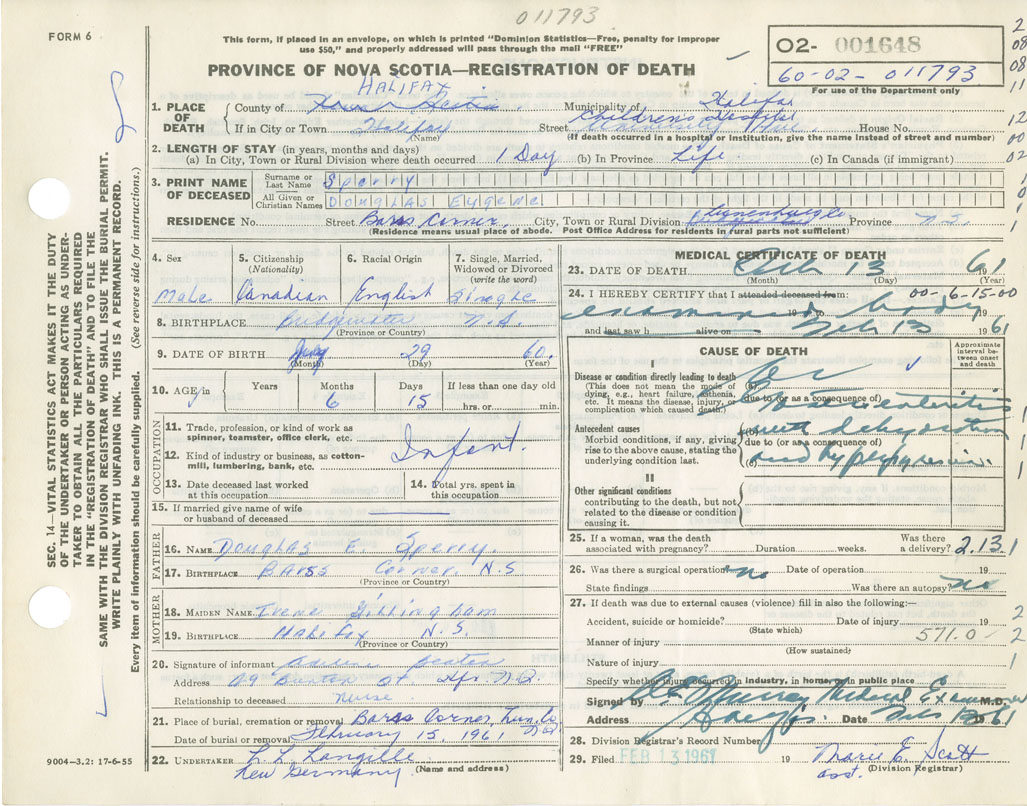 011793
FORM 6
This form, if placed in an envelope, on which is printed "Dominion Statistics—Free, penalty for improper
use $50," and properly addressed will pass through the mail "FREE"
O2- 001648
60-02- 011793
For use of the Department only
PROVINCE OF NOVA SCOTIA—REGISTRATION OF DEATH
HALIFAX
1. PLACE OF DEATH
County of
Municipality of Halifax
Children's Hospital
If in City or Town Halifax Street University Ave. House No.
(Name) (If death occurred in a hospital or institution, give the name instead of street and number)
2. LENGTH OF STAY (in years, months and days)
(a) In City, Town or Rural Division where death occurred 1 Day (b) In Province Life. (c) In Canada (if immigrant)
3. PRINT NAME OF DECEASED
Surname or Last Name Sperry
All Given or Christian Names DOUGLAS EUGENE
RESIDENCE No. Street Barss Corner, City, Town or Rural Division Lunenburg Co Province N.S.
(Residence means usual place of abode. Post Office Address for residents in rural parts not sufficient)
4. Sex
Male
5. Citizenship
(Nationality)
Canadian
6. Racial Origin
English
7. Single, Married,
Widowed or Divorced
(write the word)
Single
8. BIRTHPLACE Bridgewater N.S.
(Province or Country)
9. DATE OF BIRTH July 29 60.
(Month) (Day) (Year)
10. AGE
Years Months Days If less than one day old
6 15 hrs. or min.
OCCUPATION
11. Trade, profession, or kind of work as
spinner, teamster, office clerk, etc.
Infant.
12. Kind of industry or business, as cotton-
mill, lumbering, bank, etc.
13. Date deceased last worked
at this occupation
14. Total yrs. spent in
this occupation
15. If married give name of wife
or husband of deceased
FATHER
16. NAME Douglas E. Sperry.
17. BIRTHPLACE BARSS Corner N.S
(Province or Country)
MOTHER
18. MAIDEN NAME Irene
19. BIRTHPLACE Halifax N.S.
(Province or Country)
20. Signature of informant
Address St Hfx
Relationship to deceased Nurse
21. Place of burial, cremation or removal Barss Corner, Lun. Co.
Date of burial or removal February 15, 1961
22. UNDERTAKER L. L. Langille
New Germany
(Name and address)
9004—3.2: 17-6-55
MEDICAL CERTIFICATE OF DEATH
23. DATE OF DEATH Feb 13 1961
(Month) (Day) (Year)
24. I HEREBY CERTIFY that I attended deceased from:
00-6-15-00
examined body
19 to 19
and last saw h alive on Feb 13 1961
CAUSE OF DEATH
Approximate
interval be-
tween onset
and death
I
Disease or condition directly leading to death
(This does not mean the mode of
dying, e.g., heart failure, asthenia,
etc. It means the disease, injury, or
complication which caused death.)
(a)
due to (or as a consequence of)
Gastroenteritis
Antecedent causes
Morbid conditions, if any, giving
rise to the above cause, stating the
underlying condition last.
(b) with dehydration
due to (or as a consequence of)
(c) and hyperpyrexia.
II
Other significant conditions
contributing to the death, but not
related to the disease or condition
causing it.
25. If a woman, was the death
associated with pregnancy? Duration weeks. Was there
a delivery? 2.13.1
26. Was there a surgical operation? no Date of operation 19
State findings Was there an autopsy? no
27. If death was due to external causes (violence) fill in also the following:—
Accident, suicide or homicide? Date of injury 19
(State which)
Manner of injury 571.0
(How sustained)
Nature of injury
Specify whether injury occurred in industry, in home, or in public place
Signed by Murray Medical Examiner M.D.
Address Halifax Date Feb 13 1961
28. Division Registrar's Record Number
29. Filed FEB 13 1961 19 Marie E. Scott
asst. (Division Registrar)
SEC. 14—VITAL STATISTICS ACT MAKES IT THE DUTY
OF THE UNDERTAKER OR PERSON ACTING AS UNDER-
TAKER TO OBTAIN ALL THE PARTICULARS REQUIRED
IN THE "REGISTRATION OF DEATH" AND TO FILE THE
SAME WITH THE DIVISION REGISTRAR WHO SHALL ISSUE THE BURIAL PERMIT.
WRITE PLAINLY WITH UNFADING INK. THIS IS A PERMANENT RECORD.
Every item of information should be carefully supplied. (See reverse side for instructions.)